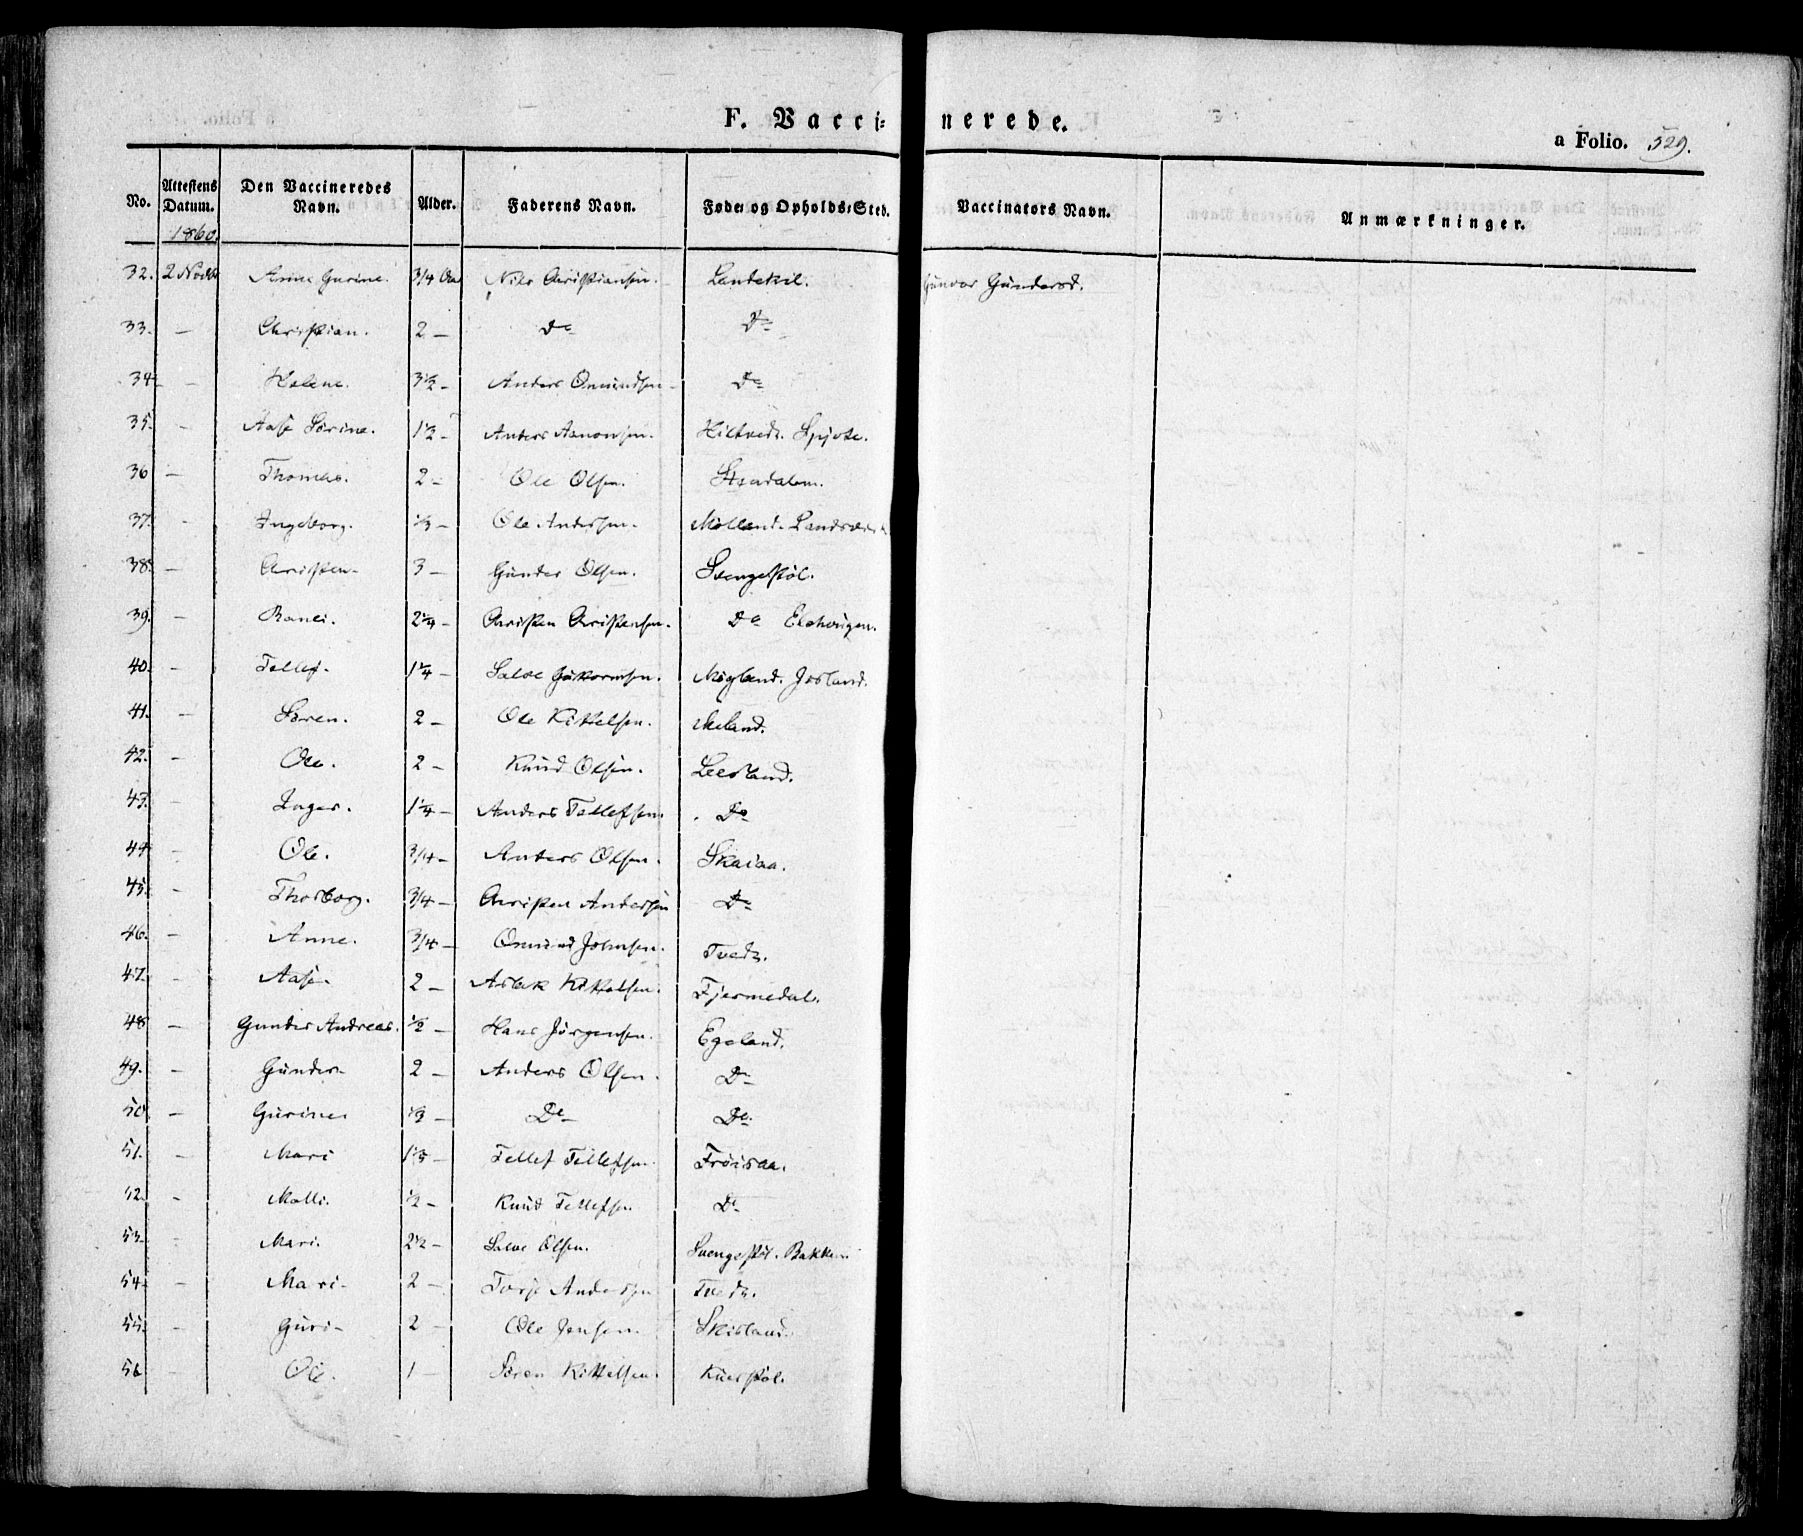 F. Vacci=nerede.
a Folio. 529.
No. Attestens Datum. Den Vaccineredes Navn. Alder. Faderens Navn. Føde= og Opholds=Sted. Vaccinators Navn. Anmærkninger.
1860.
32. 2 Novbr Anne Gurine. 3/4 Aar Nils Christiansen. Landekil. Gunvor Gundersd.
33. — Christian. 2 — Do Do
34. — Helene. 3½ — Anders Omundsen — Do
35. — Aase Sørine. 1½ — Anders Aanonsen. Hiltvedt.
36 — Thomas. 2 — Ole Olsen. Stendalem.
37. — Ingeborg. ½ — Ole Andersen. Molland.
38. — Christen — 3 — Günder Olsen. Svengestøl.
39. — 2¼ — Christen Christensen. Do
40. — Tellef. 1¼ — Salve Guttormsen. Migland. Josland.
41. — Søren. 2 — Ole Kittelsen. Meland.
42. — Ole. 2 — Knud Olsen. Leesland.
43. — Inger. 1¼ — Anders Tellefsen. Do
44 — Ole. 3/4 — Anders Olsen. Skaiaa.
45. — Thorborg. 3/4 — Christen Andersen Do
46. — Anne. 3/4 — Omund Johnsen. Tvedt.
47. — Aase. 2 — Aslak Kittelsen. Fjermedal.
48 — Gunder Andreas. ½ — Hans Jørgensen. Egeland.
49. — Günder — 2 — Anders Olsen. Do
50. — Gurine. Do Do
51. — Mari Tellef Tellefsen. Frøisaa.
52. — Malli. ½ — Knud Tellefsen. Do
53. — Mari. 2½ — Salve Olsen. Svengestøl. Bakken.
54. — Mari — 2 — Torje Andersen Tvedt.
55. — Guri — 2 — Ole Jensen. Skisland.
56 — Ole. 1 — Søren Kittelsen.